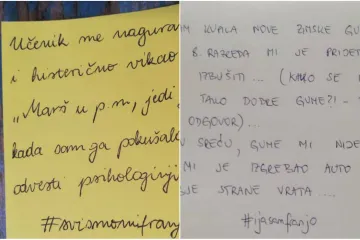 Učenik me naguravao
i histerično vikao
„Marš u p.m., jedi
kada sam ga pokušala
odvesti psihologinji
#svismomifranjo
M KVALA NOVE ZIMSKE GU
8. RAZREDA MI JE PRIJET
IZBUŠITI ... (KAKO SE
TAKO DOBRE GUME?! -
ODGOVOR)...
U SREĆU, GUME MI NIJE
MI JE IZGREBAO AUTO
JE STRANE VRATA ....
#ijasamfranjo